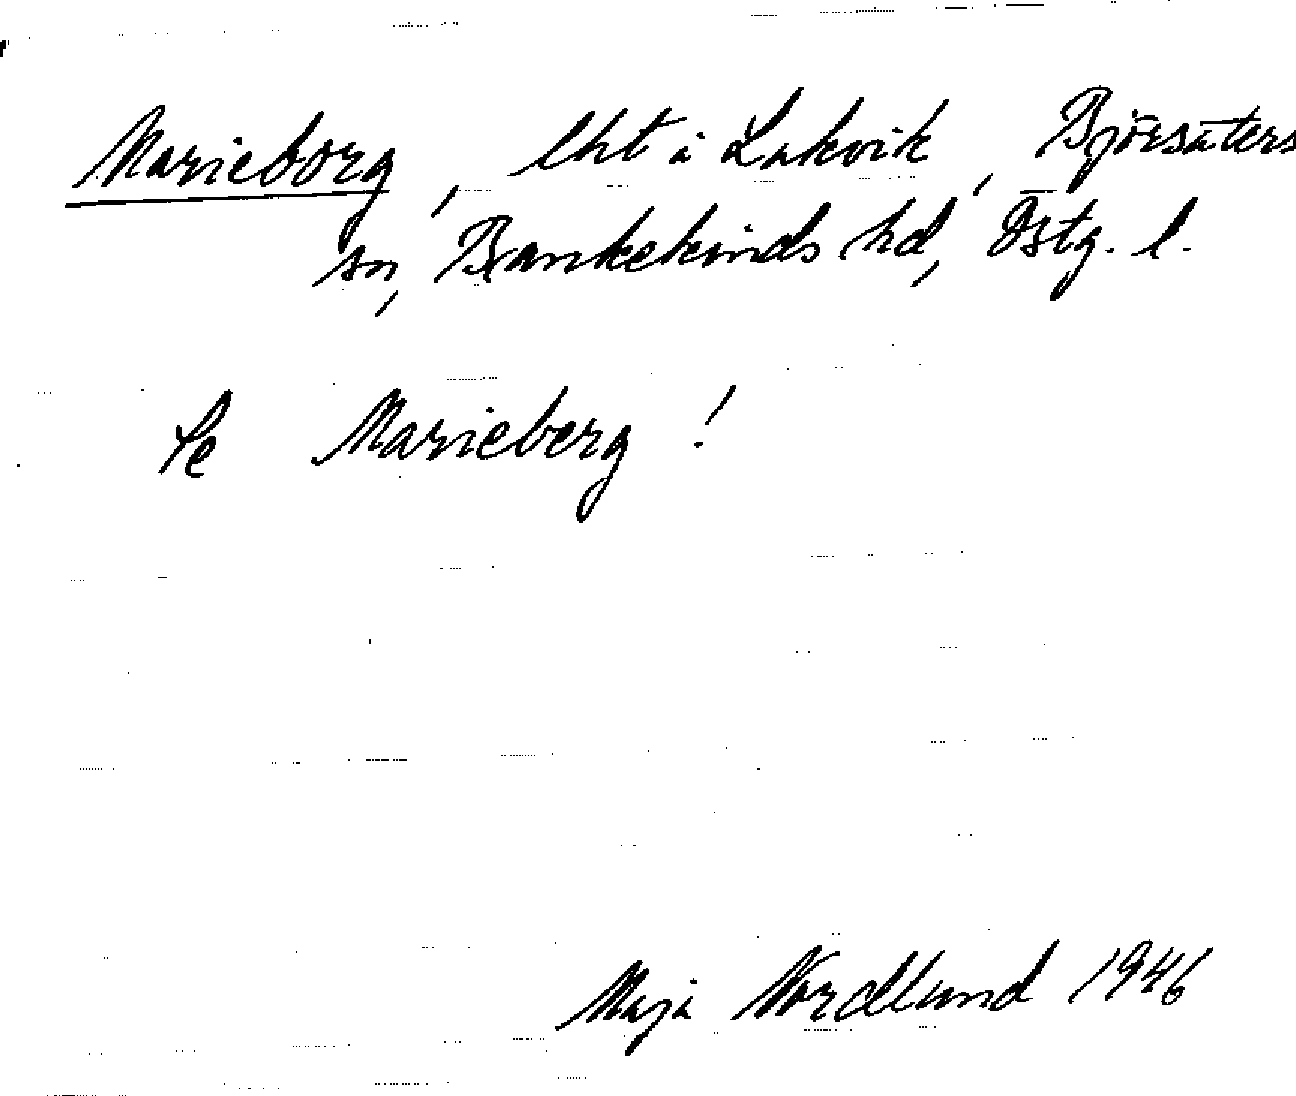 Marieborg, lht å Lakvik, Björsäters
sn, Bankekinds hd, Östg. l.
Se Marieberg!
Maja Nordlund 1946